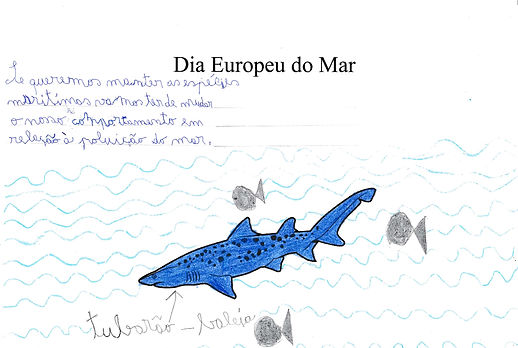 Dia Europeu do Mar
Se queremos manter as espécies
marítimas vamos ter de mudar
o nosso comportamento em
relação à poluição do mar.
tubarão-baleia